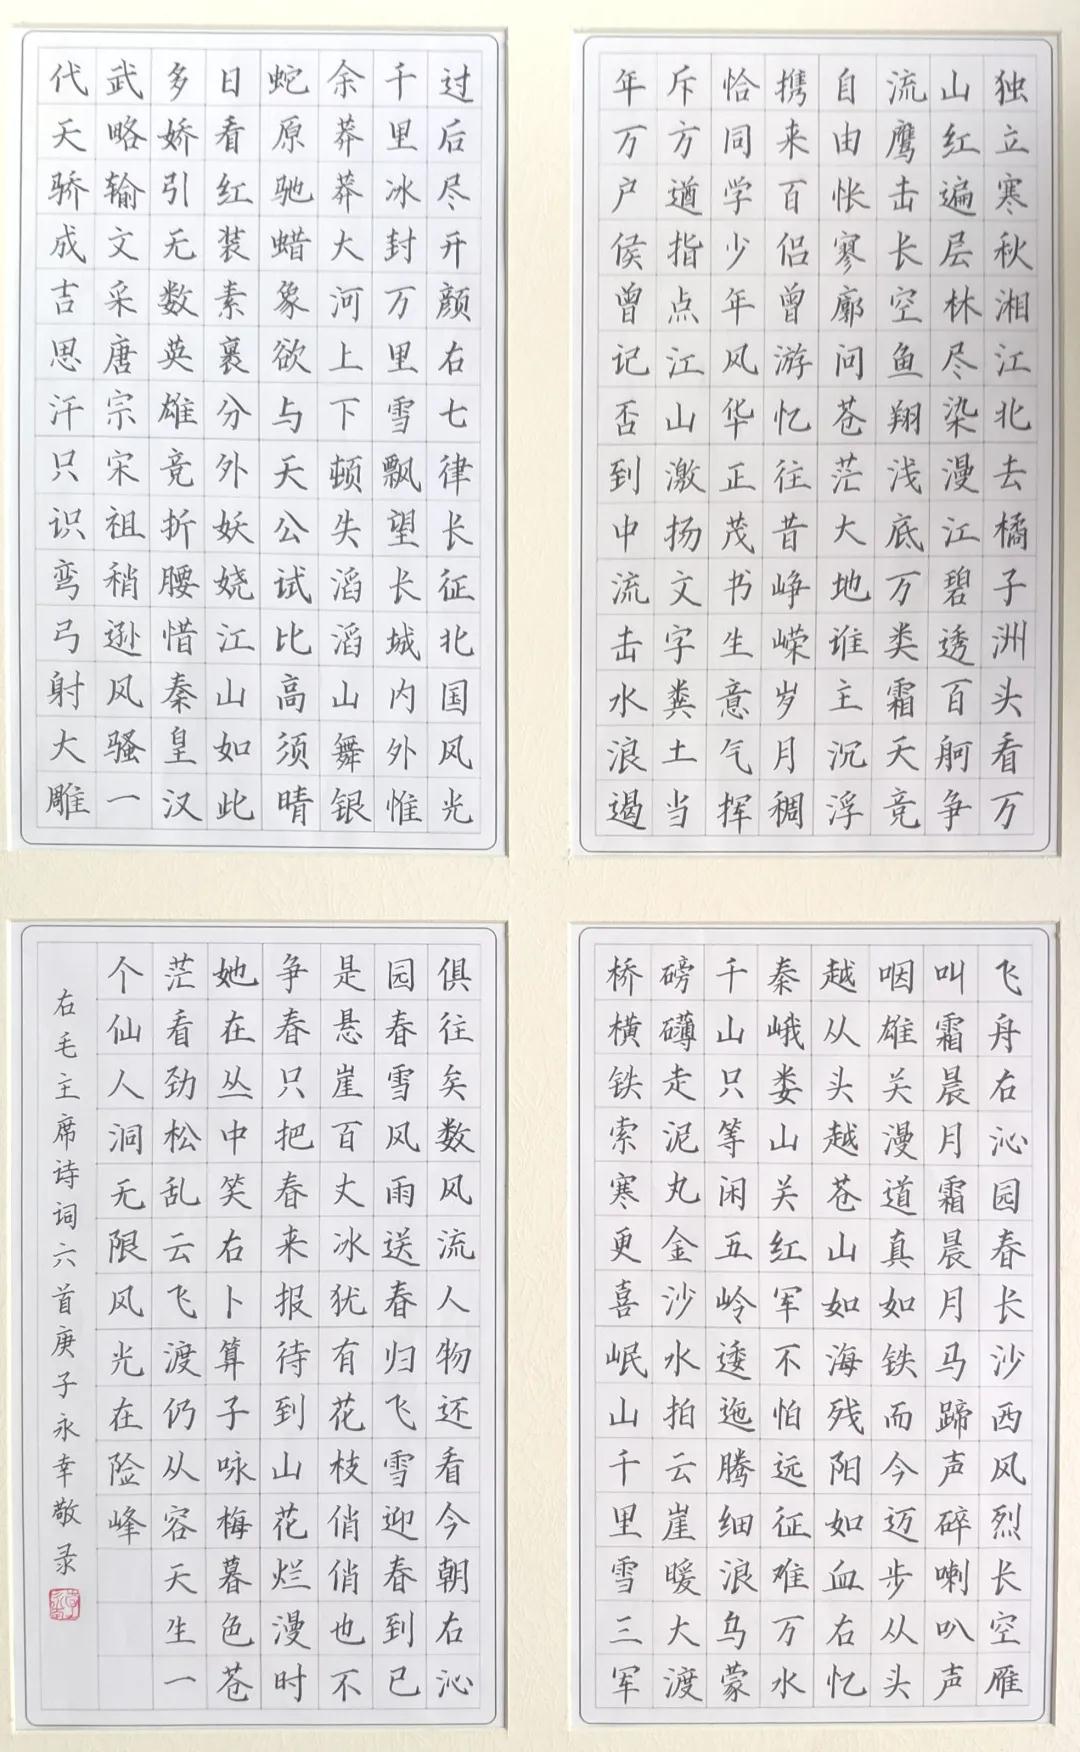 独立寒秋湘江北去橘子洲头看万
山红遍层林尽染漫江碧透百舸争
流鹰击长空鱼翔浅底万类霜天竞
自由怅寥廓问苍茫大地谁主沉浮
携来百侣曾游忆往昔峥嵘岁月稠
恰同学少年风华正茂书生意气挥
斥方遒指点江山激扬文字粪土当
年万户侯曾记否到中流击水浪遏
飞舟右沁园春长沙西风烈长空雁
叫霜晨月霜晨月马蹄声碎喇叭声
咽雄关漫道真如铁而今迈步从头
越从头越苍山如海残阳如血右忆
秦峨娄山关红军不怕远征难万水
千山只等闲五岭逶迤腾细浪乌蒙
磅礴走泥丸金沙水拍云崖暖大渡
桥横铁索寒更喜岷山千里雪三军
过后尽开颜右七律长征北国风光
千里冰封万里雪飘望长城内外惟
余莽莽大河上下顿失滔滔山舞银
蛇原驰蜡象欲与天公试比高须晴
日看红装素裹分外妖娆江山如此
多娇引无数英雄竞折腰惜秦皇汉
武略输文采唐宗宋祖稍逊风骚一
代天骄成吉思汗只识弯弓射大雕
俱往矣数风流人物还看今朝右沁
园春雪风雨送春归飞雪迎春到已
是悬崖百丈冰犹有花枝俏俏也不
争春只把春来报待到山花烂漫时
她在丛中笑右卜算子咏梅暮色苍
茫看劲松乱云飞渡仍从容天生一
个仙人洞无限风光在险峰
右毛主席诗词六首庚子永幸敬录